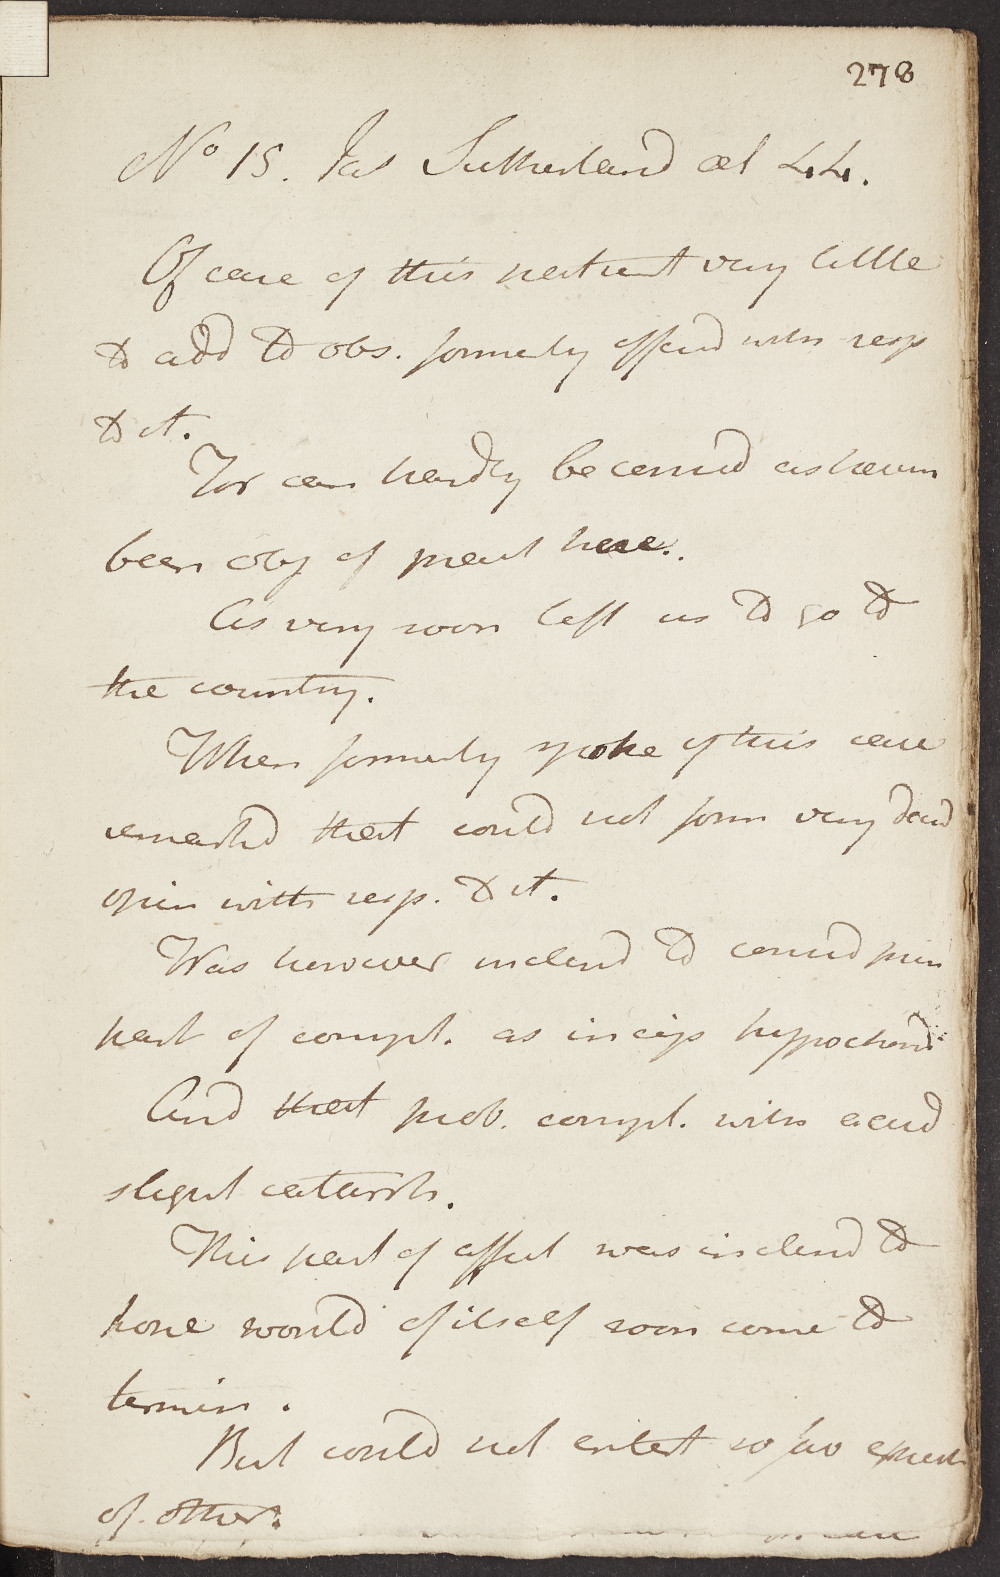 278
No 15. Jas Sutherland æt 44.
Of case of this patient very little
to add to obs. formerly offerd with resp
to it.
For can hardly be considd as havin
been obj of pract here.
As very soon left us to go to
the country.
When formerly spoke of this case
remarkd that could not form very decid
opin with resp. to it.
Was however inclend to considd prin
part of compl. as incip hypochond
And that prob. compl. with accid
slight catarrh.
This part of affect was inclend to
hope would of itself soon come to
termin.
But could not entert so fav expect
of other.